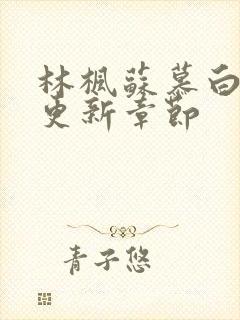 林楓蘇慕白
更新章節
青子悠